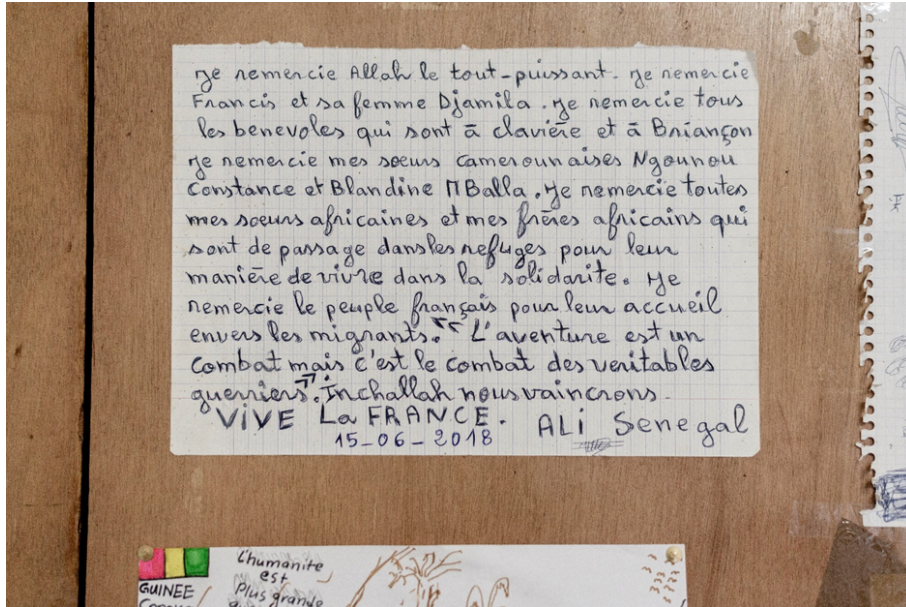 Je remercie Allah le tout-puissant. Je remercie
Francis et sa femme Djamila. Je remercie tous
les benevoles qui sont à clavière et à Briançon
Je remercie mes soeurs camerounaises Ngounou
Constance et Blandine MBalla. Je remercie toutes
mes soeurs africaines et mes frères africains qui
sont de passage dans les refuges pour leur
manière de vivre dans la solidarite. Je
remercie le peuple français pour leur accueil
envers les migrants. "L'aventure est un
combat mais c'est le combat des veritables
guerriers". Inchallah nous vaincrons.
VIVE La FRANCE. ALi Senegal
15-06-2018
L'humanite
est
Plus grande
GUINEE